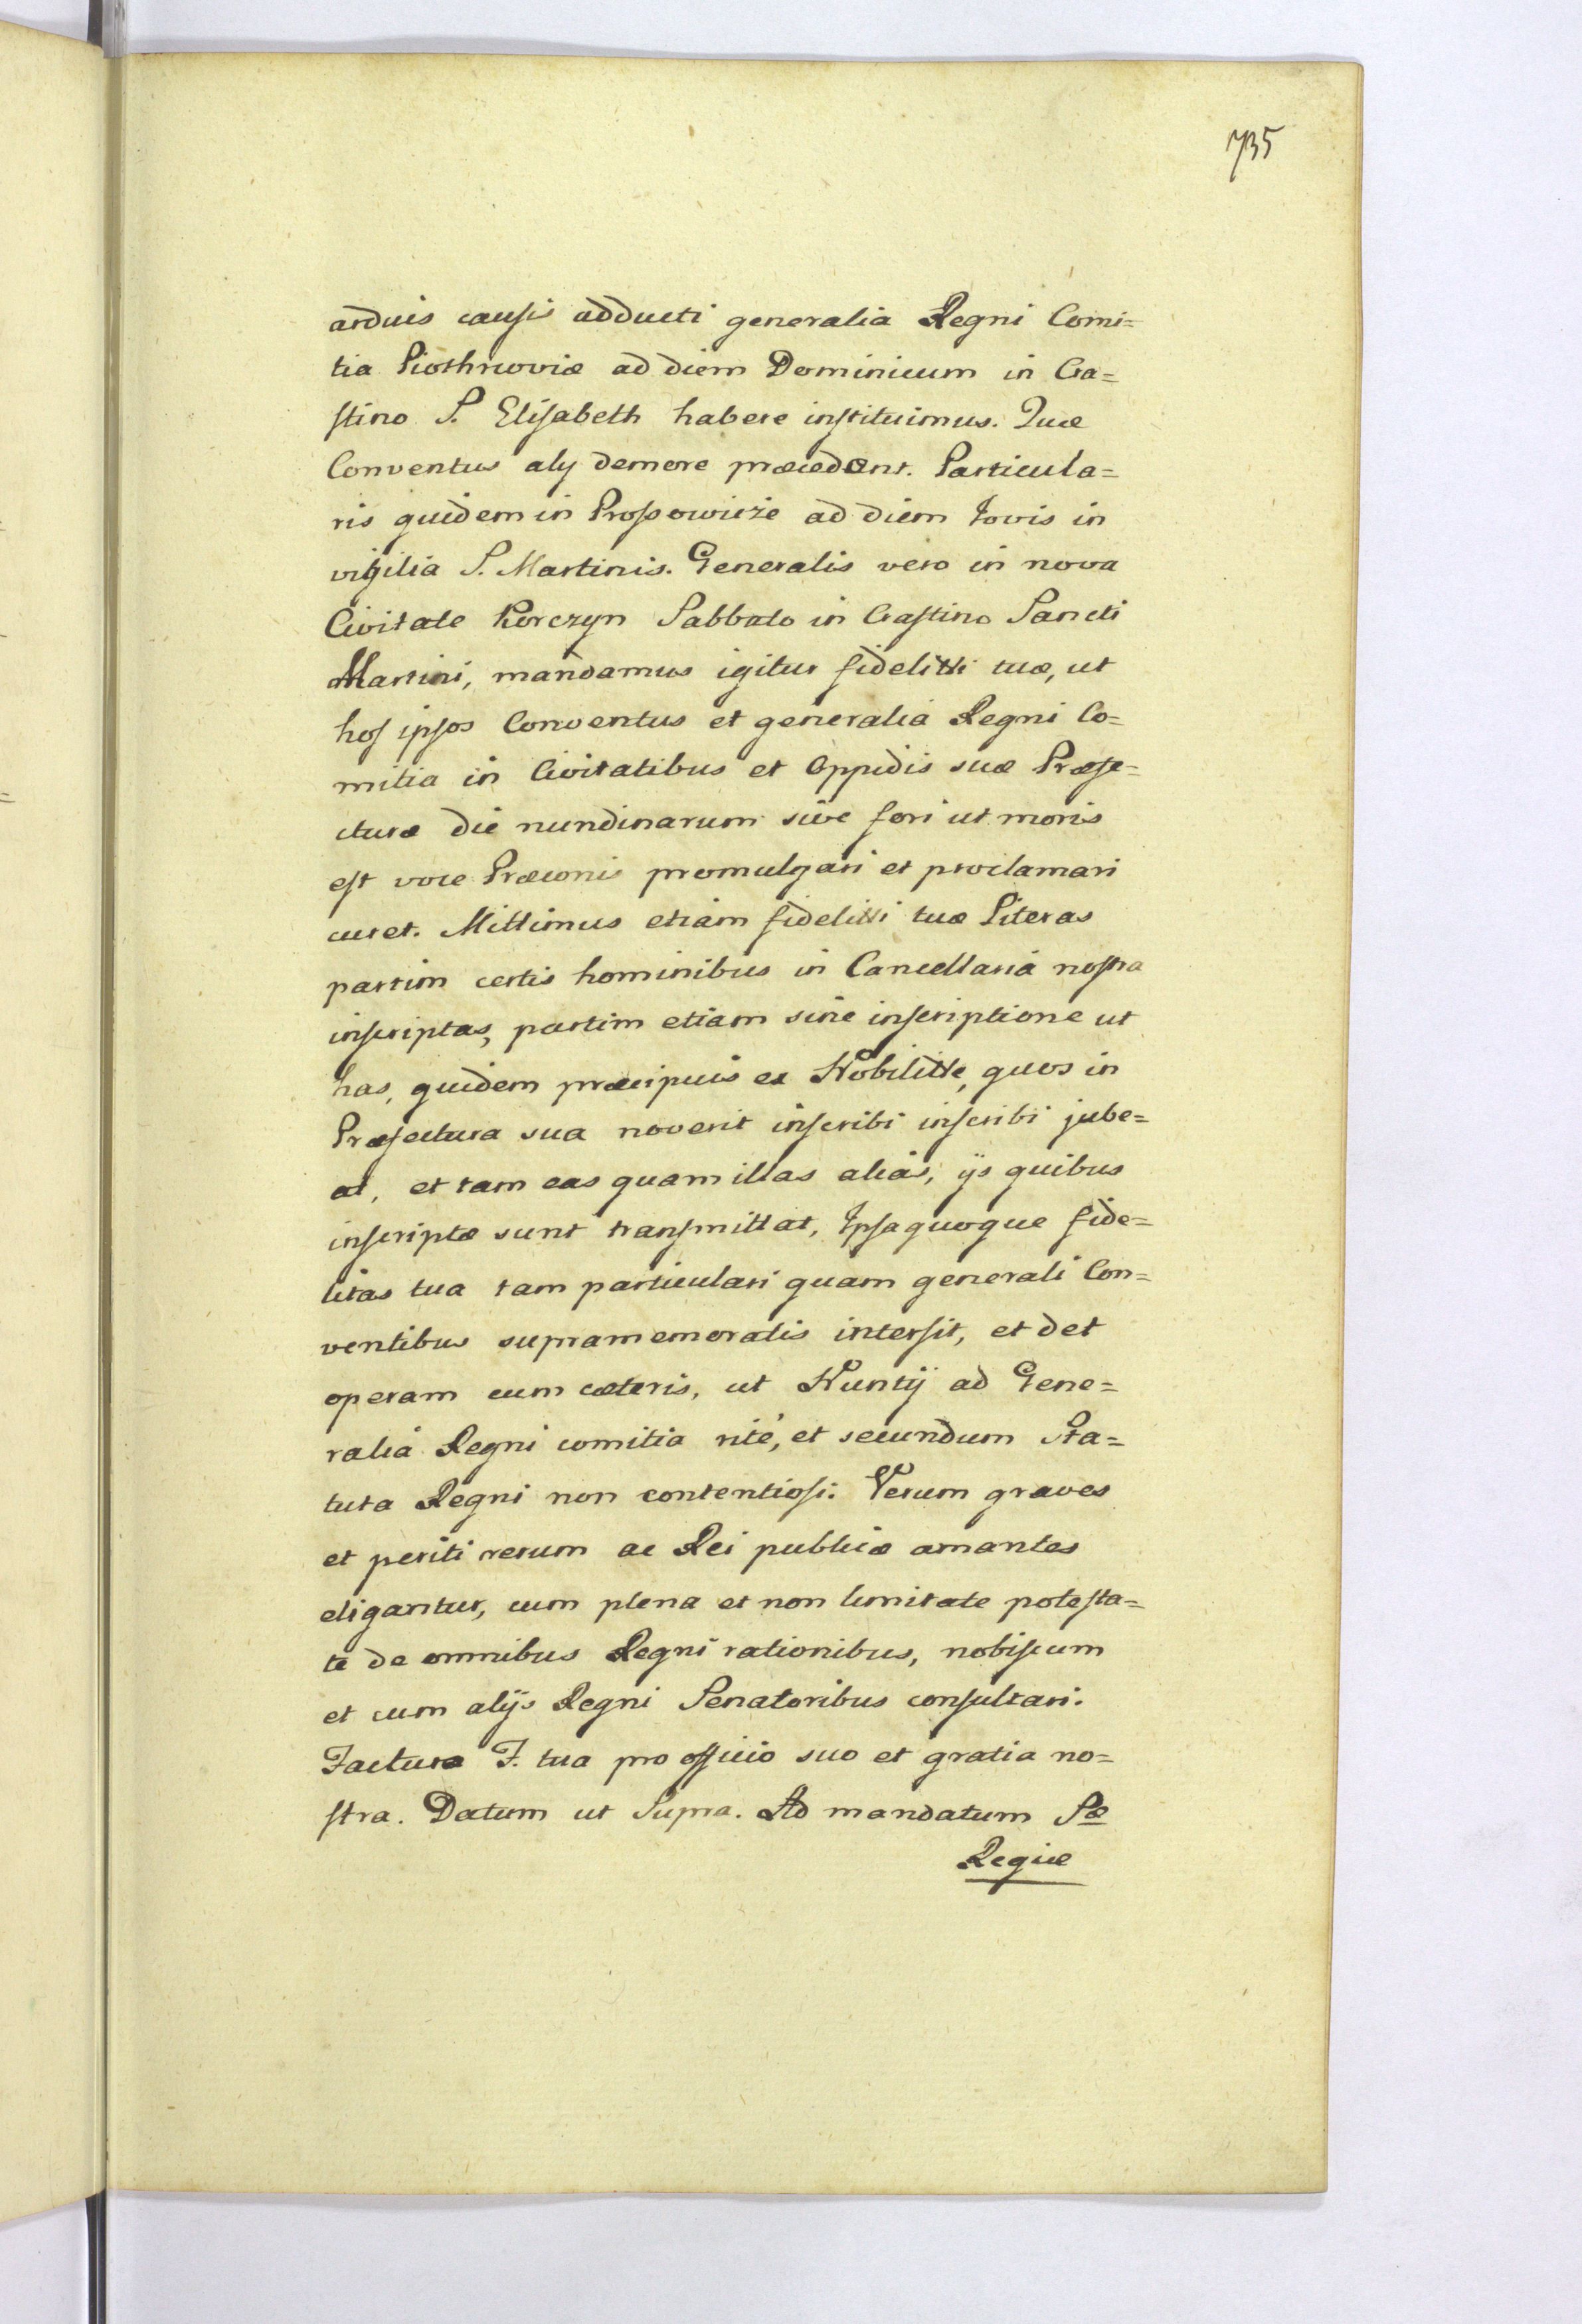 735
arduis causis adducti generalia Regni Comi=
tia Piothrcoviæ ad diem Dominicum in Cra=
stino S. Elisabeth habere instituimus. Quæ
Conventus aly demore præcedent. Particula=
ris quidem in Prossowicze ad diem Jovis in
vigilia S. Martinis. Generalis vero in nova
Civitate Korczyn Sabbato in Crastino Sancti
Martini, mandamus igitur fidelitti tuæ, ut
hos ipsos Conventus et generalia Regni Co=
mitia in Civitatibus et Oppidis suæ Præfe=
cturæ die nundinarum sive fori ut moris
est voce Præconis promulgari et proclamari
curet. Mittimus etiam fidelitti tuæ Literas
partim certis hominibus in Cancellaria nostra
inscriptas, partim etiam sine inscriptione ut
has, quidem præcipuis ex Nobilitte, quos in
Præfectura sua noverit inscribi inscribi jube=
at, et tam eas quam illas alias, ijs quibus
inscriptæ sunt transmittat, Ipsa quoque fide=
litas tua tam particulari quam generali Con=
ventibus supramemoratis intersit, et det
operam cum cæteris, ut Nuntij ad Gene=
ralia Regni comitia rité, et secundum Sta=
tuta Regni non contentiosi. Verum graves
et periti rerum ac Rei publicæ amantes
eligantur, cum plena et non limitate potesta=
te de omnibus Regni rationibus, nobiscum
et cum alijs Regni Senatoribus consultari.
Factura F. tua pro officio suo et gratia no=
stra. Datum ut Supra. Ad mandatum Sæ
Regiæ